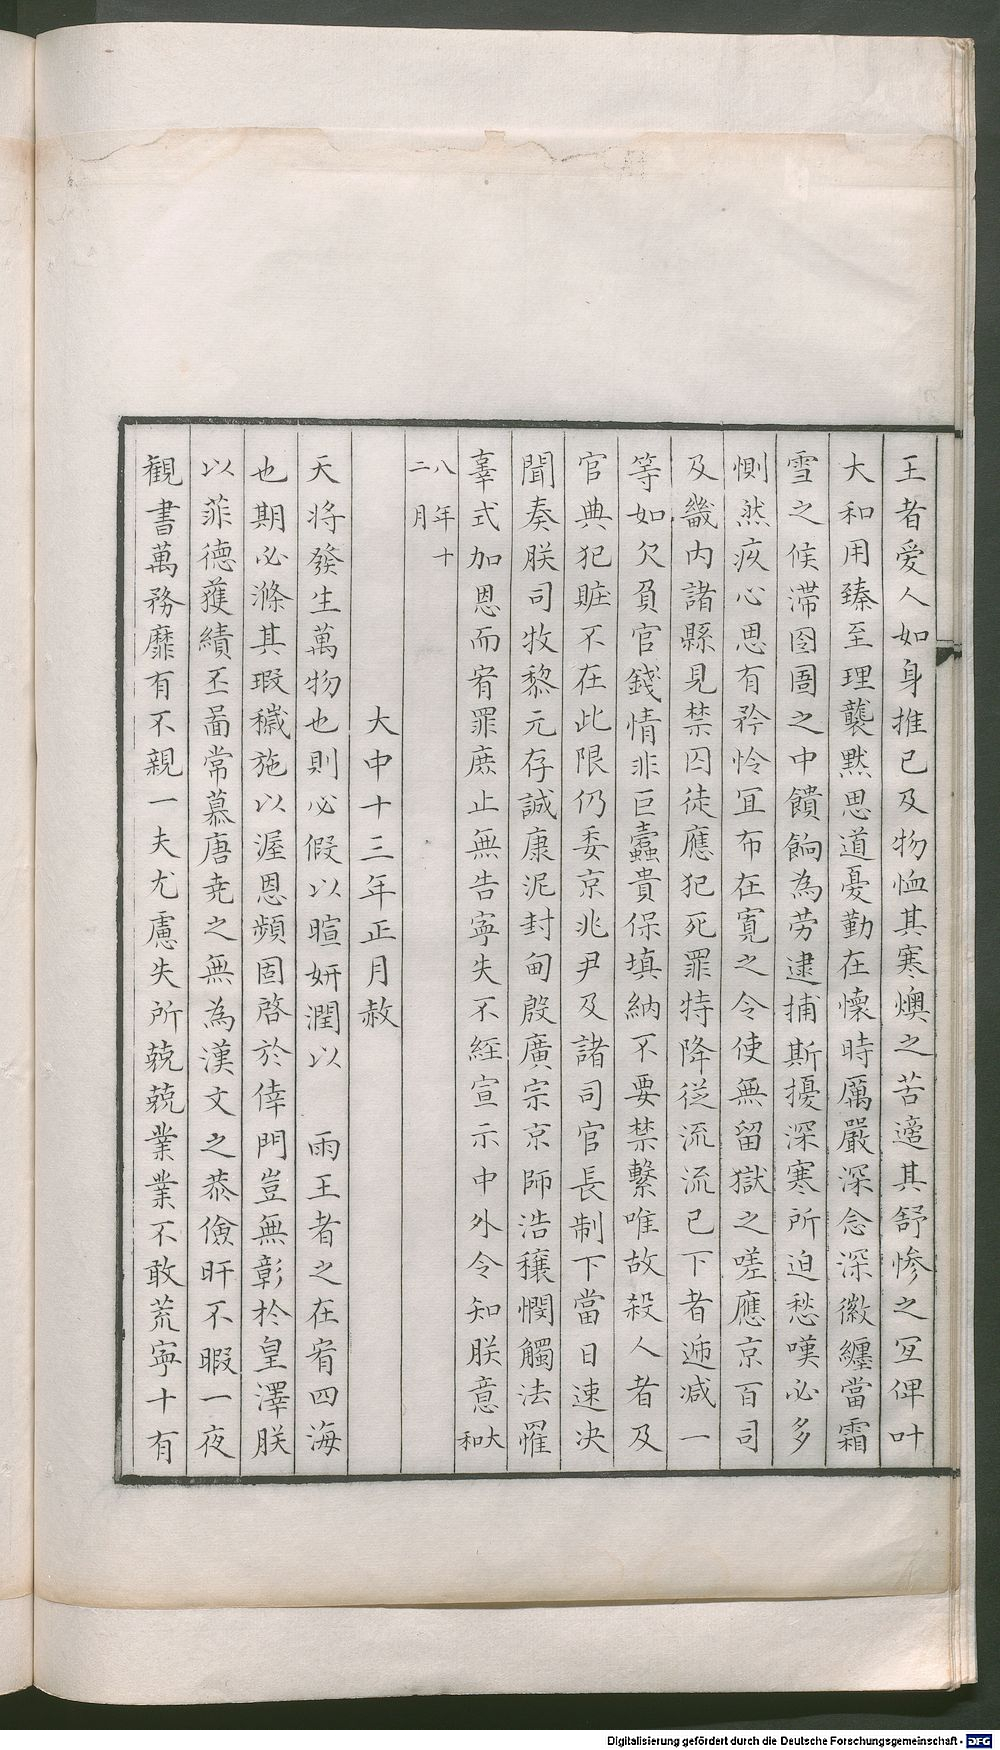 王者爱人如身推己及物恤其寒燠之苦適其舒惨之宜俾叶
大和用臻至理襲黙思道憂勤在懷時厲嚴深念深徽纏當霜
雪之候滞囹圄之中饋餉為劳逮捕斯擾深寒所迫愁嘆必多
惻然疚心思有矜怜宜布在寛之令使無留獄之嗟應京百司
及畿内諸縣見禁囚徒應犯死罪特降従流流已下者逓減一
等如欠負官錢情非巨蠹貴保填納不要禁繫唯故殺人者及
官典犯賍不在此限仍委京兆尹及諸司官長制下當日速决
聞奏朕司牧黎元存誠康泥封甸殷廣宗京師浩穰憫觸法罹
辜式加恩而宥罪庶止無告寧失不経宣示中外令知朕意大和
八年十二月
大中十三年正月赦
天将發生萬物也則必假以暄妍潤以 雨王者之在宥四海
也期必滌其瑕穢施以渥恩頻固啓於倖門豈無彰扵皇澤朕
以菲徳獲績丕啚常慕唐尭之無為漢文之恭儉旰不暇一夜
観書萬務靡有不親一夫尤慮失所兢兢業業不敢荒寧十有